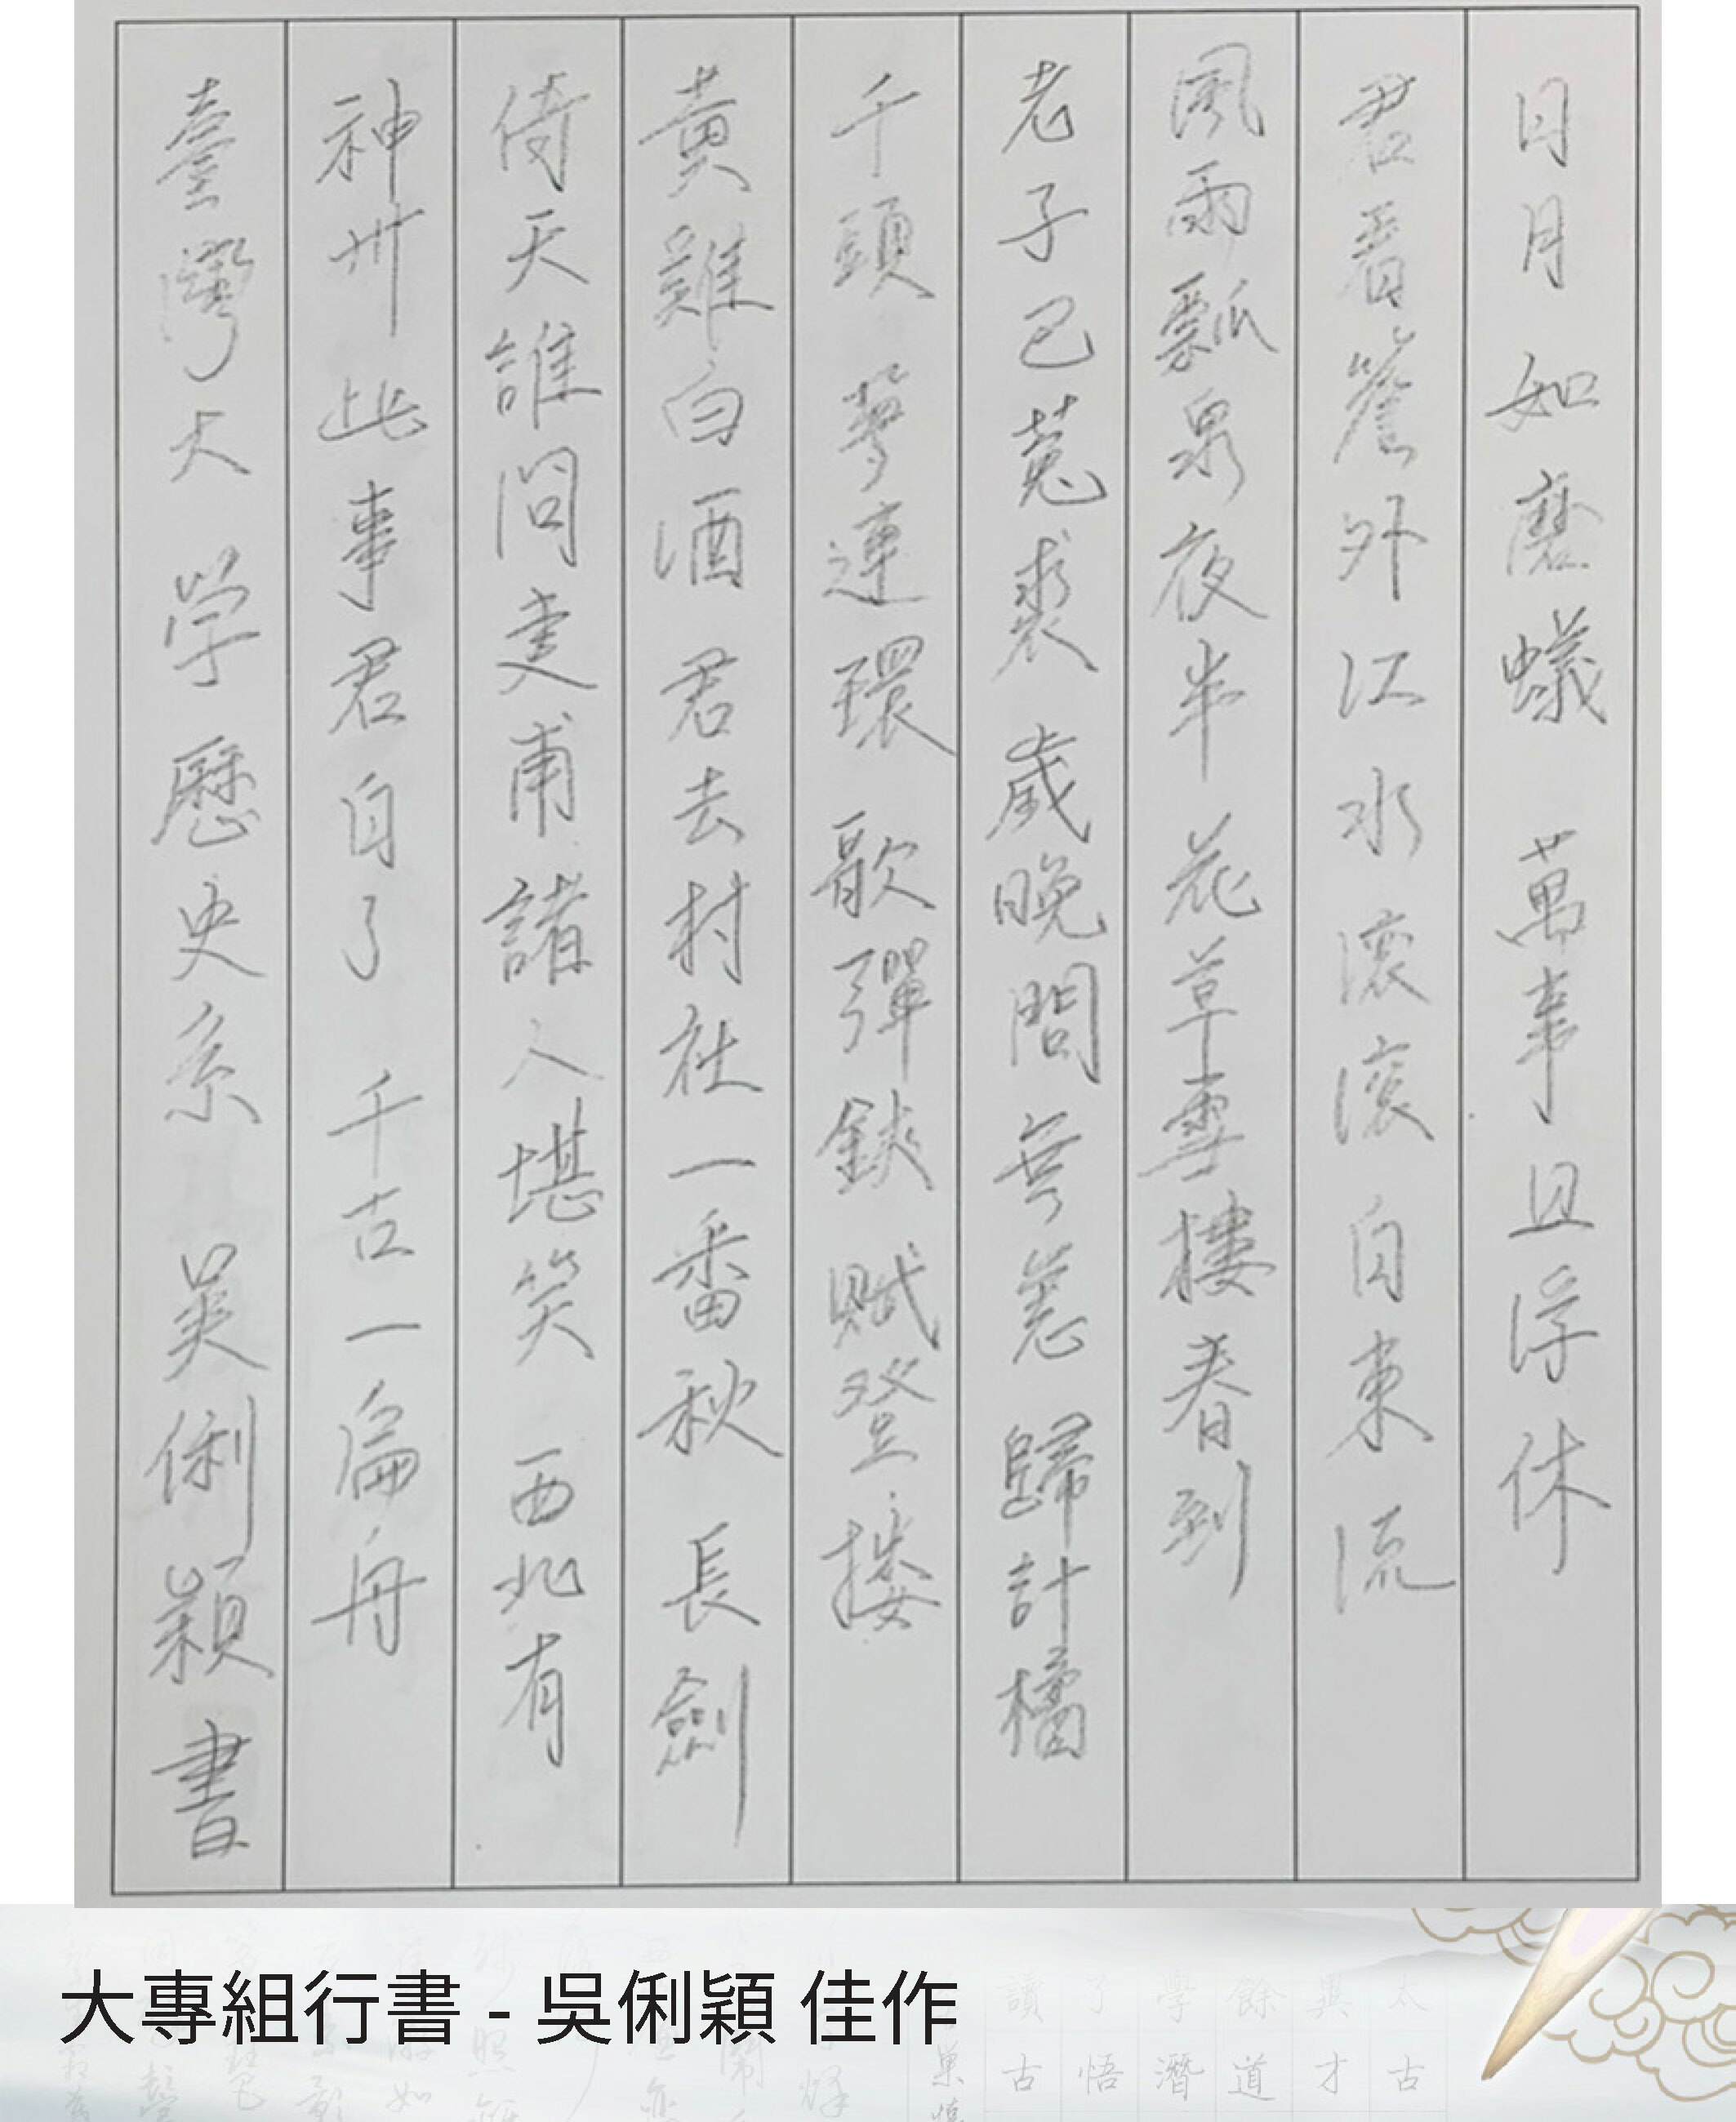 日月如磨蟻 萬事且浮休
君看簷外江水滾滾自東流
風雨瓢泉夜半花草雪樓春到
老子已菟裘 歲晚問無恙 歸計橘
千頭 夢連環 歌彈鋏 賦登樓
黃雞白酒 君去村社一番秋 長劍
倚天誰問 夷甫諸人堪笑 西北有
神州 此事君自了 千古一扁舟
臺灣大學歷史系 吳俐穎 書
大專組行書 - 吳俐穎 佳作